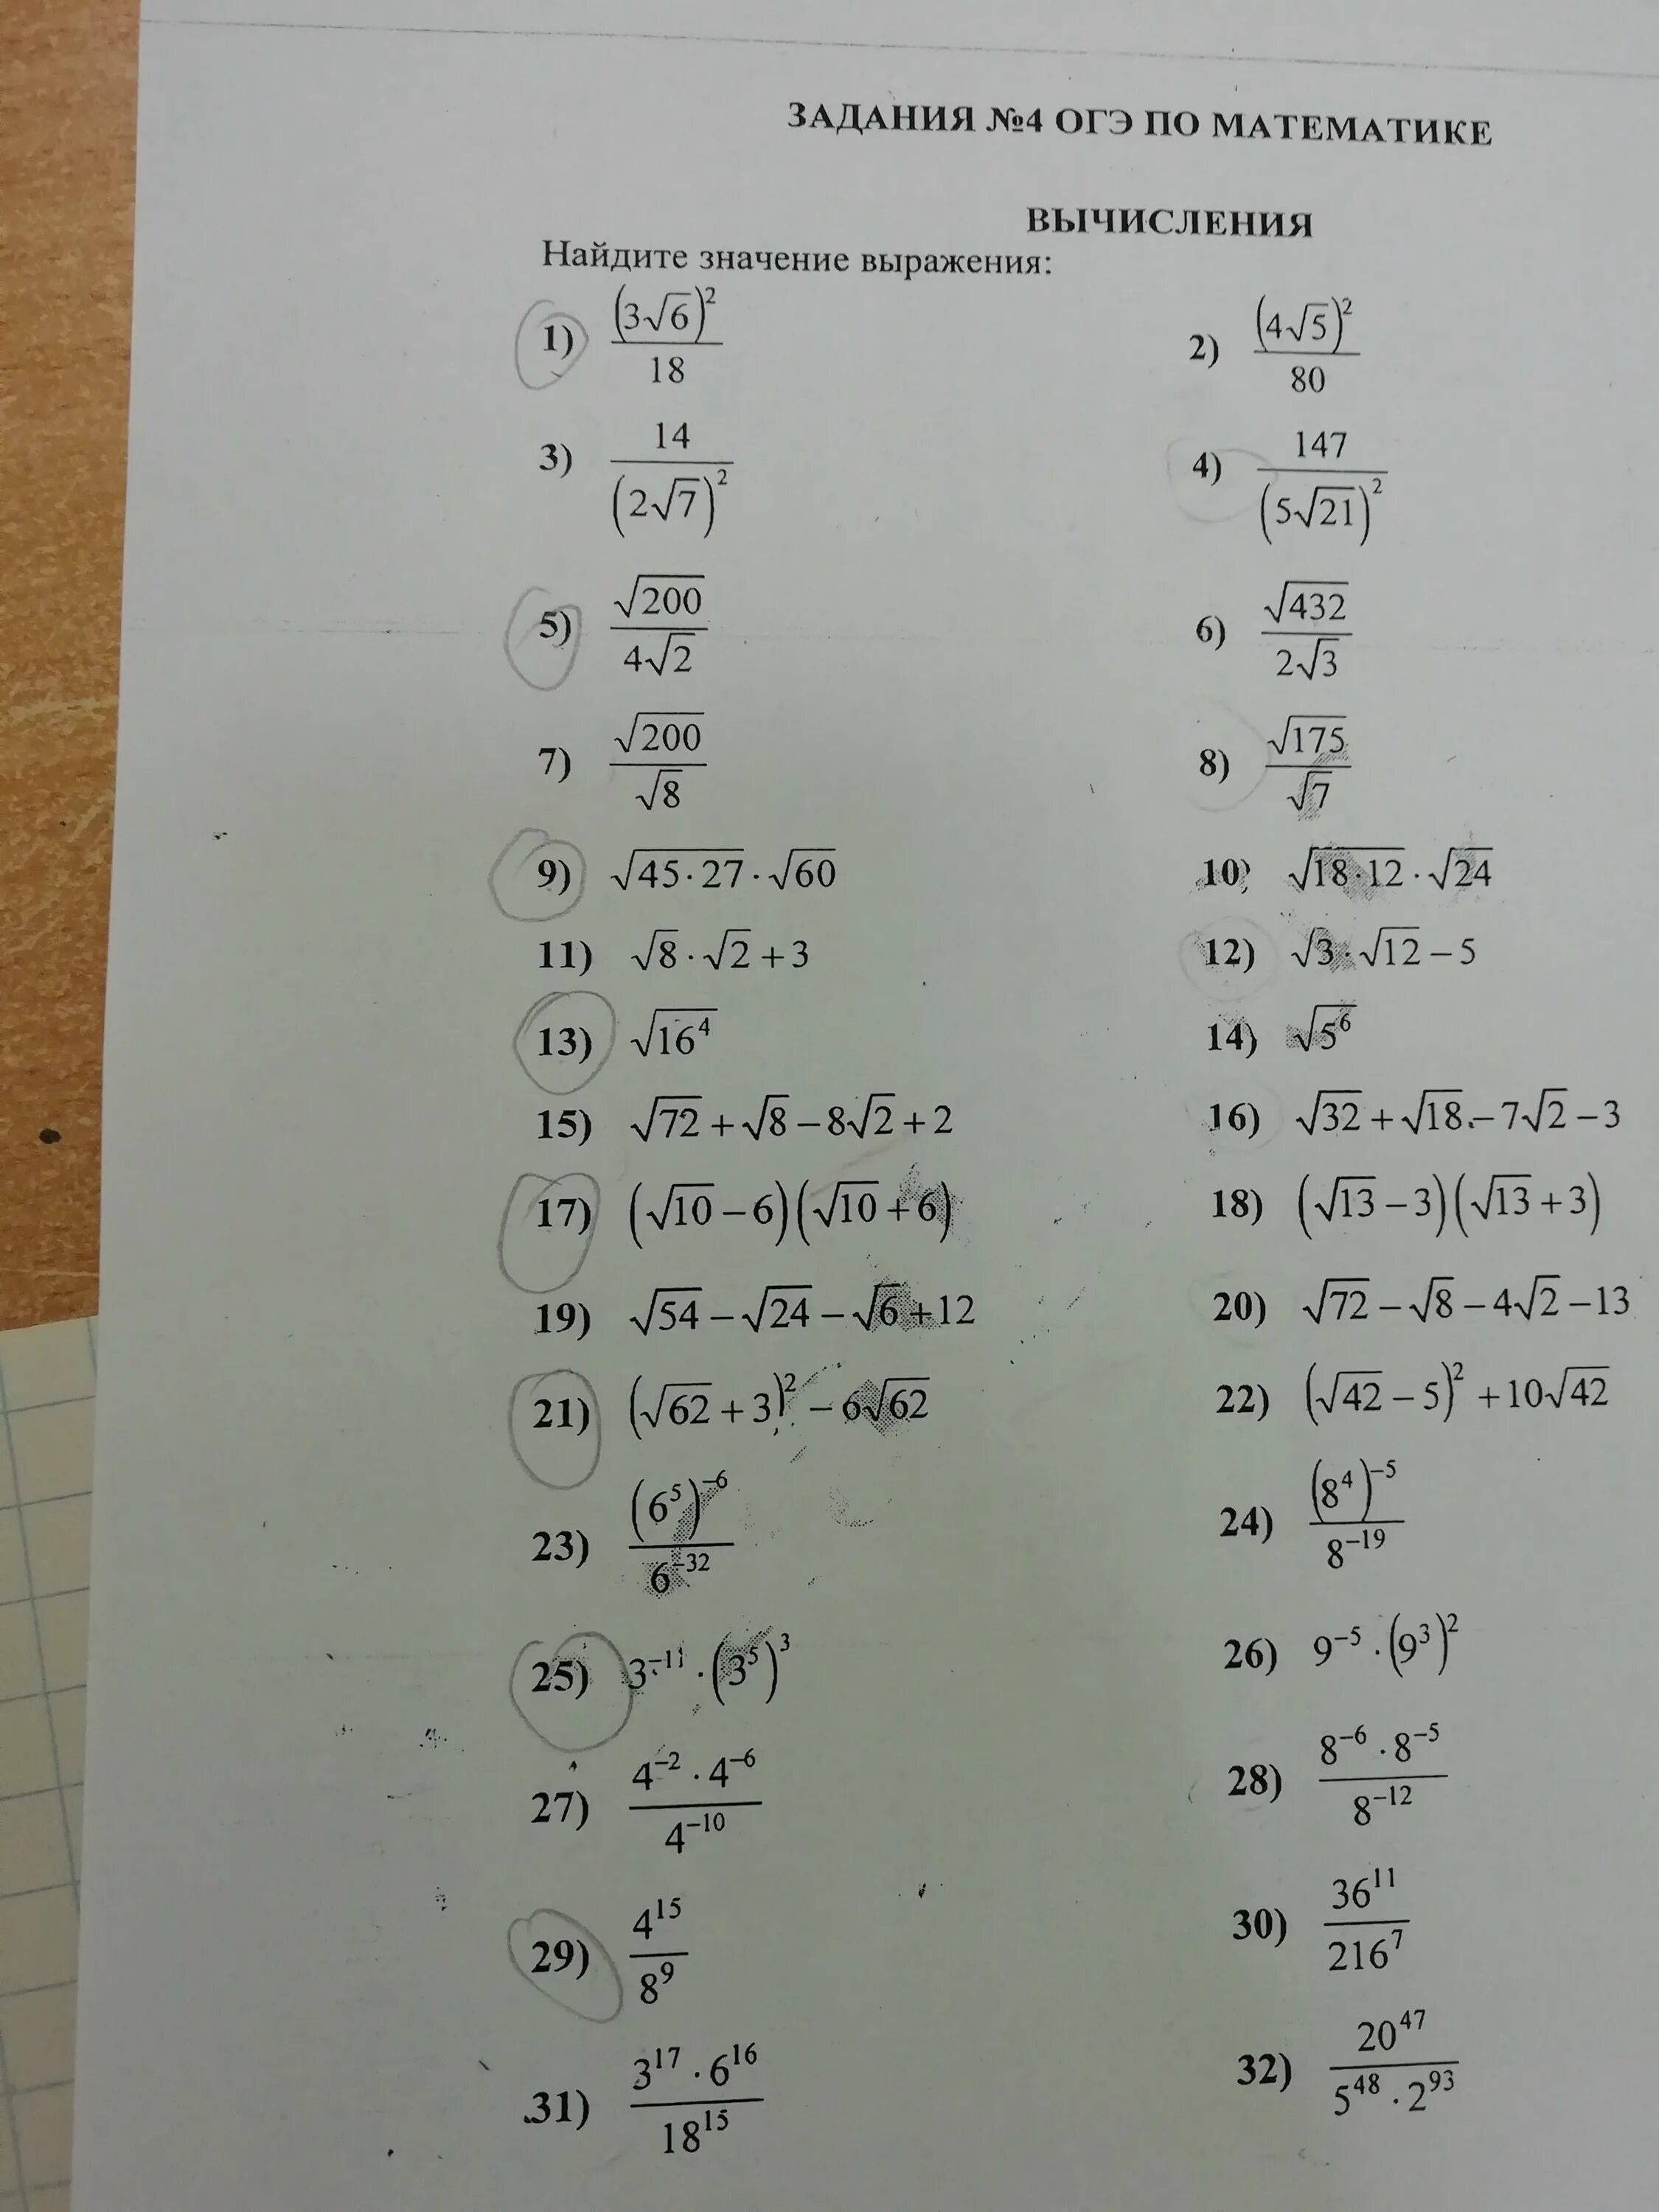 ЗАДАНИЯ №4 ОГЭ ПО МАТЕМАТИКЕ
ВЫЧИСЛЕНИЯ
Найдите значение выражения:
1) (3√6)² / 18
2) (4√5)² / 80
3) 14 / (2√7)²
4) 147 / (5√21)²
5) √200 / 4√2
6) √432 / 2√3
7) √200 / √8
8) √175 / √7
9) √45·27 · √60
10) √18·12 · √24
11) √8 · √2 + 3
12) √3 · √12 – 5
13) √16⁴
14) √5⁶
15) √72 + √8 – 8√2 + 2
16) √32 + √18 – 7√2 – 3
17) (√10 – 6)(√10 + 6)
18) (√13 – 3)(√13 + 3)
19) √54 – √24 – √6 + 12
20) √72 – √8 – 4√2 – 13
21) (√62 + 3)² – 6√62
22) (√42 – 5)² + 10√42
23) (6⁵)⁻⁶ / 6⁻³²
24) (8⁴)⁻⁵ / 8⁻¹⁹
25) 3⁻¹¹ · (3⁵)³
26) 9⁻⁵ · (9³)²
27) 4⁻² · 4⁻⁶ / 4⁻¹⁰
28) 8⁻⁶ · 8⁻⁵ / 8⁻¹²
29) 4¹⁵ / 8⁹
30) 36¹¹ / 216⁷
31) 3¹⁷ · 6¹⁶ / 18¹⁵
32) 20⁴⁷ / 5⁴⁸ · 2⁹³